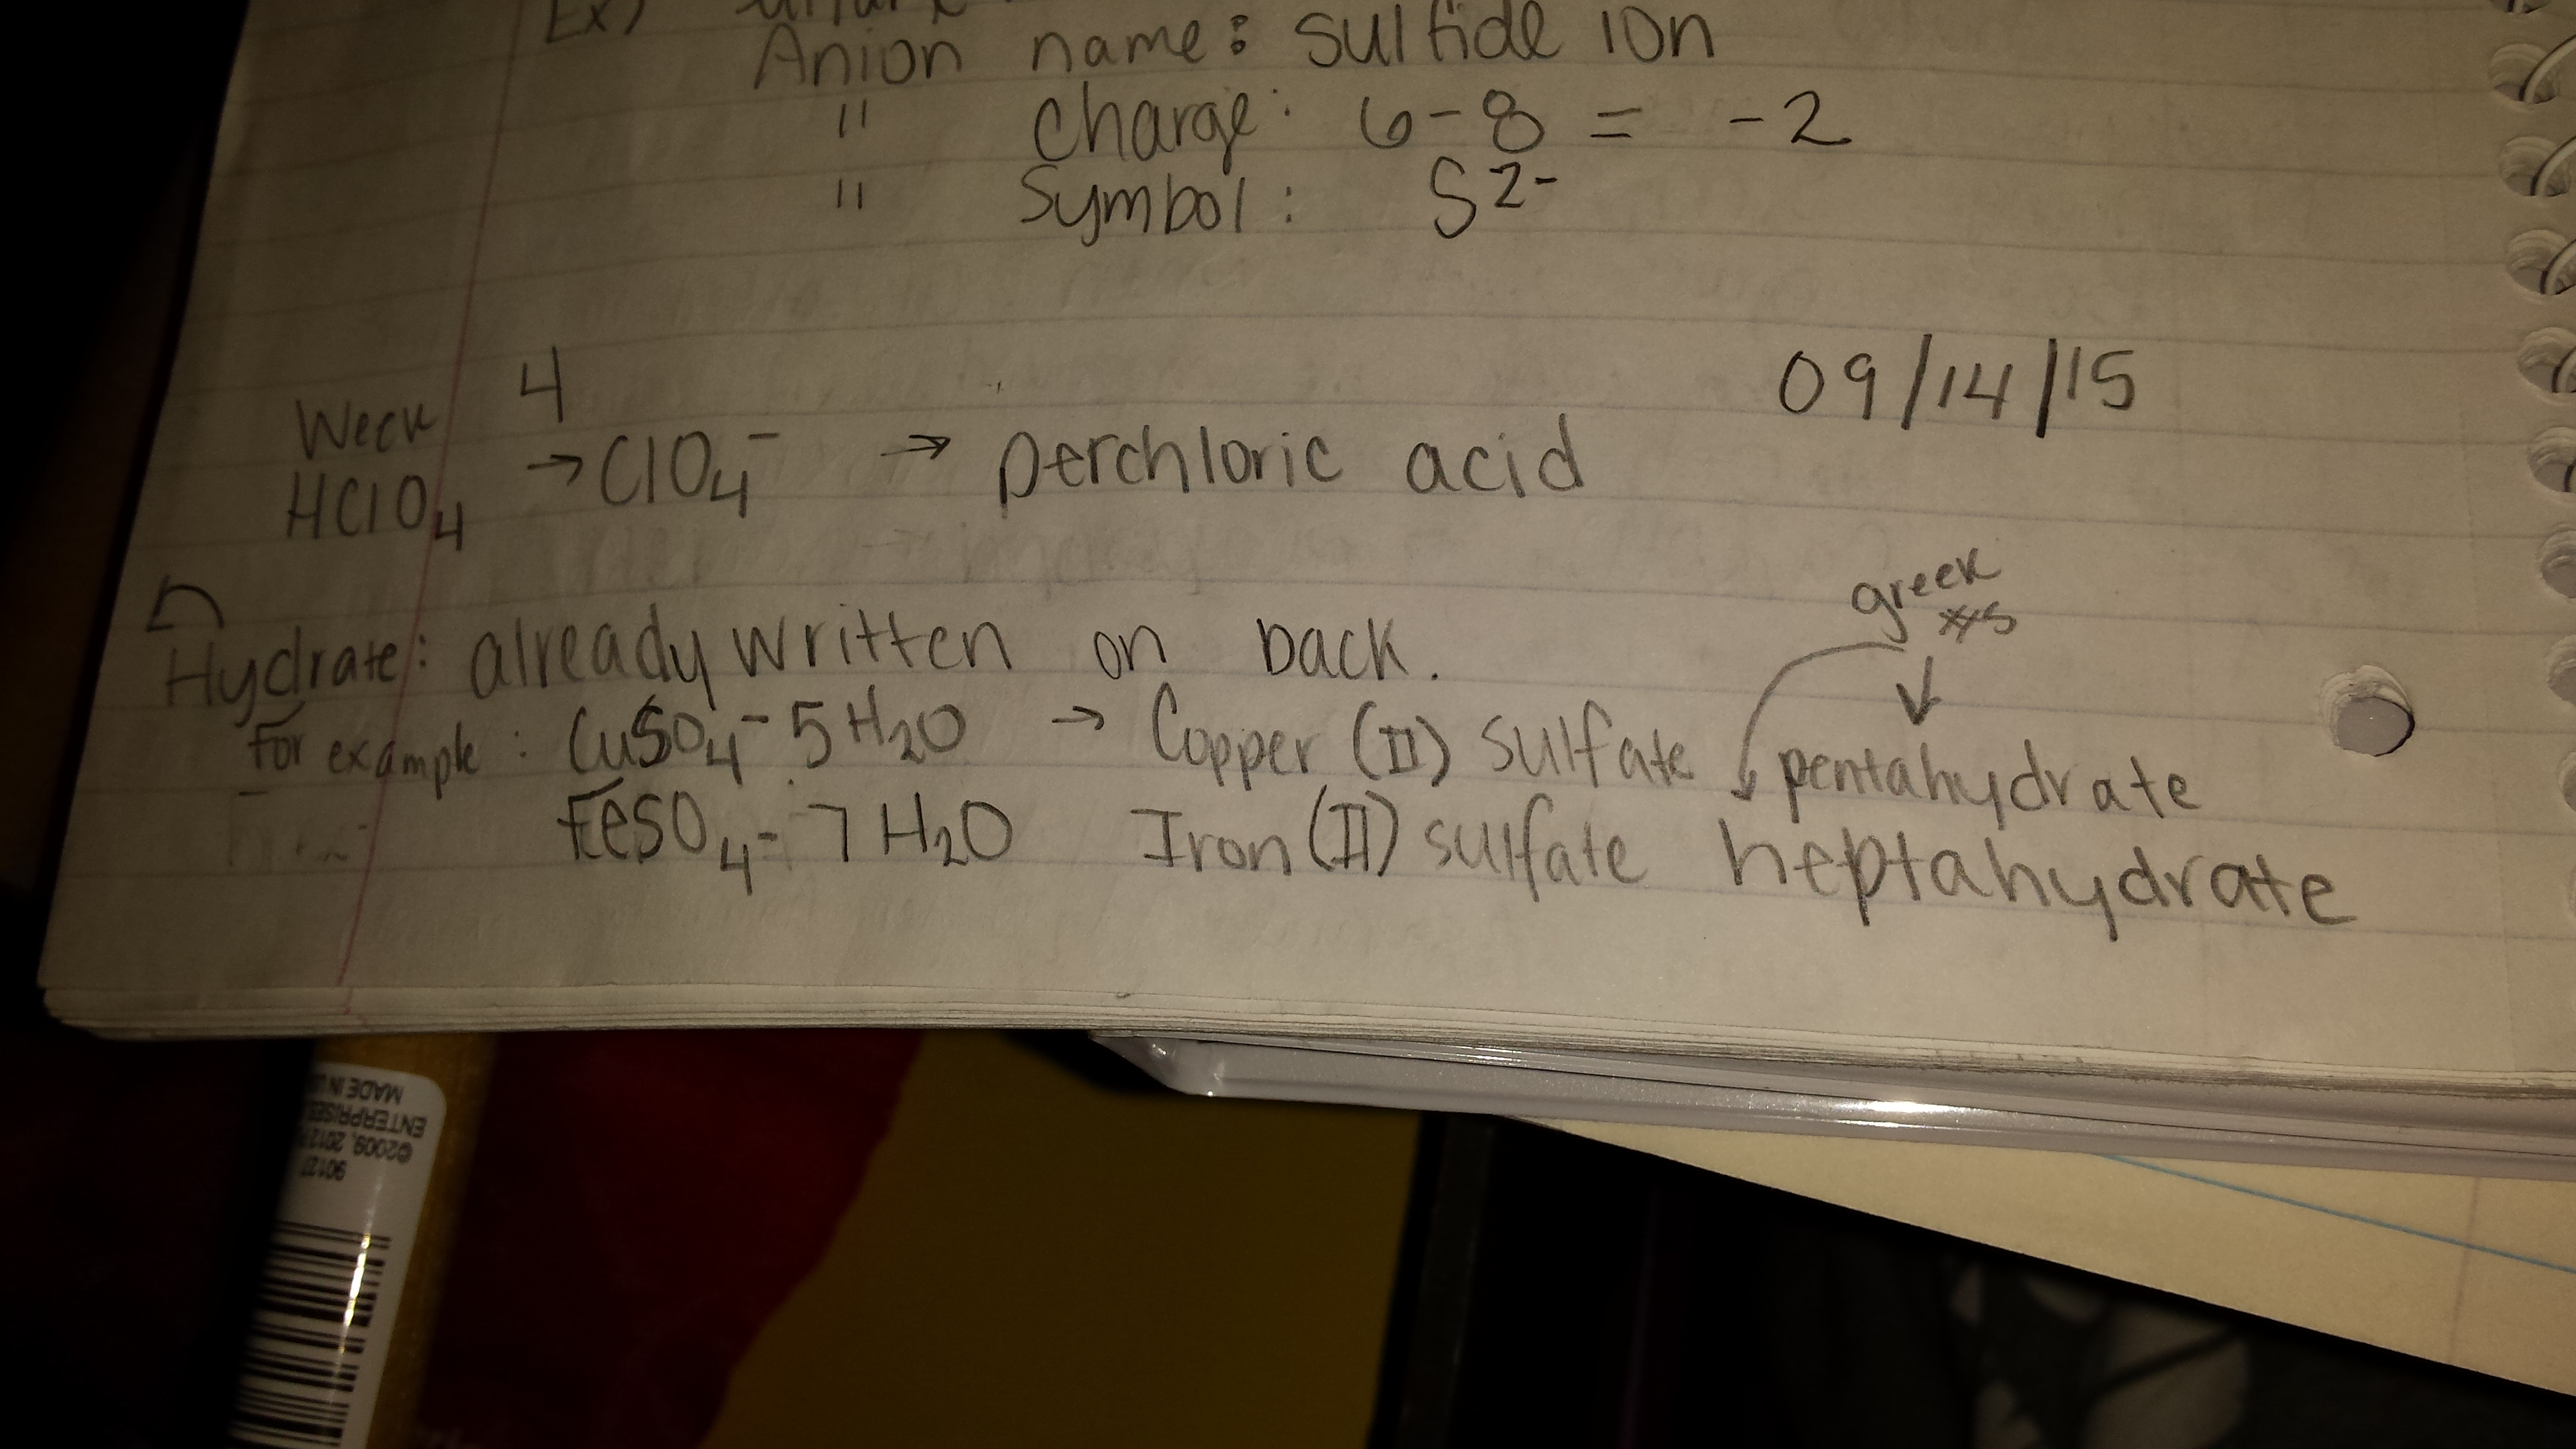 Ex)
Anion name: sulfide ion
" Charge: 6-8 = -2
" Symbol: S2-
Week 4 09/14/15
HClO4 → ClO4- → perchloric acid
greek
#s
Hydrate: already written on back.
For example: CuSO4 - 5H2O → Copper (II) sulfate pentahydrate
FeSO4 - 7H2O Iron (II) sulfate heptahydrate
MADE IN U
ENTERPRISES
©2009, 2012
90137